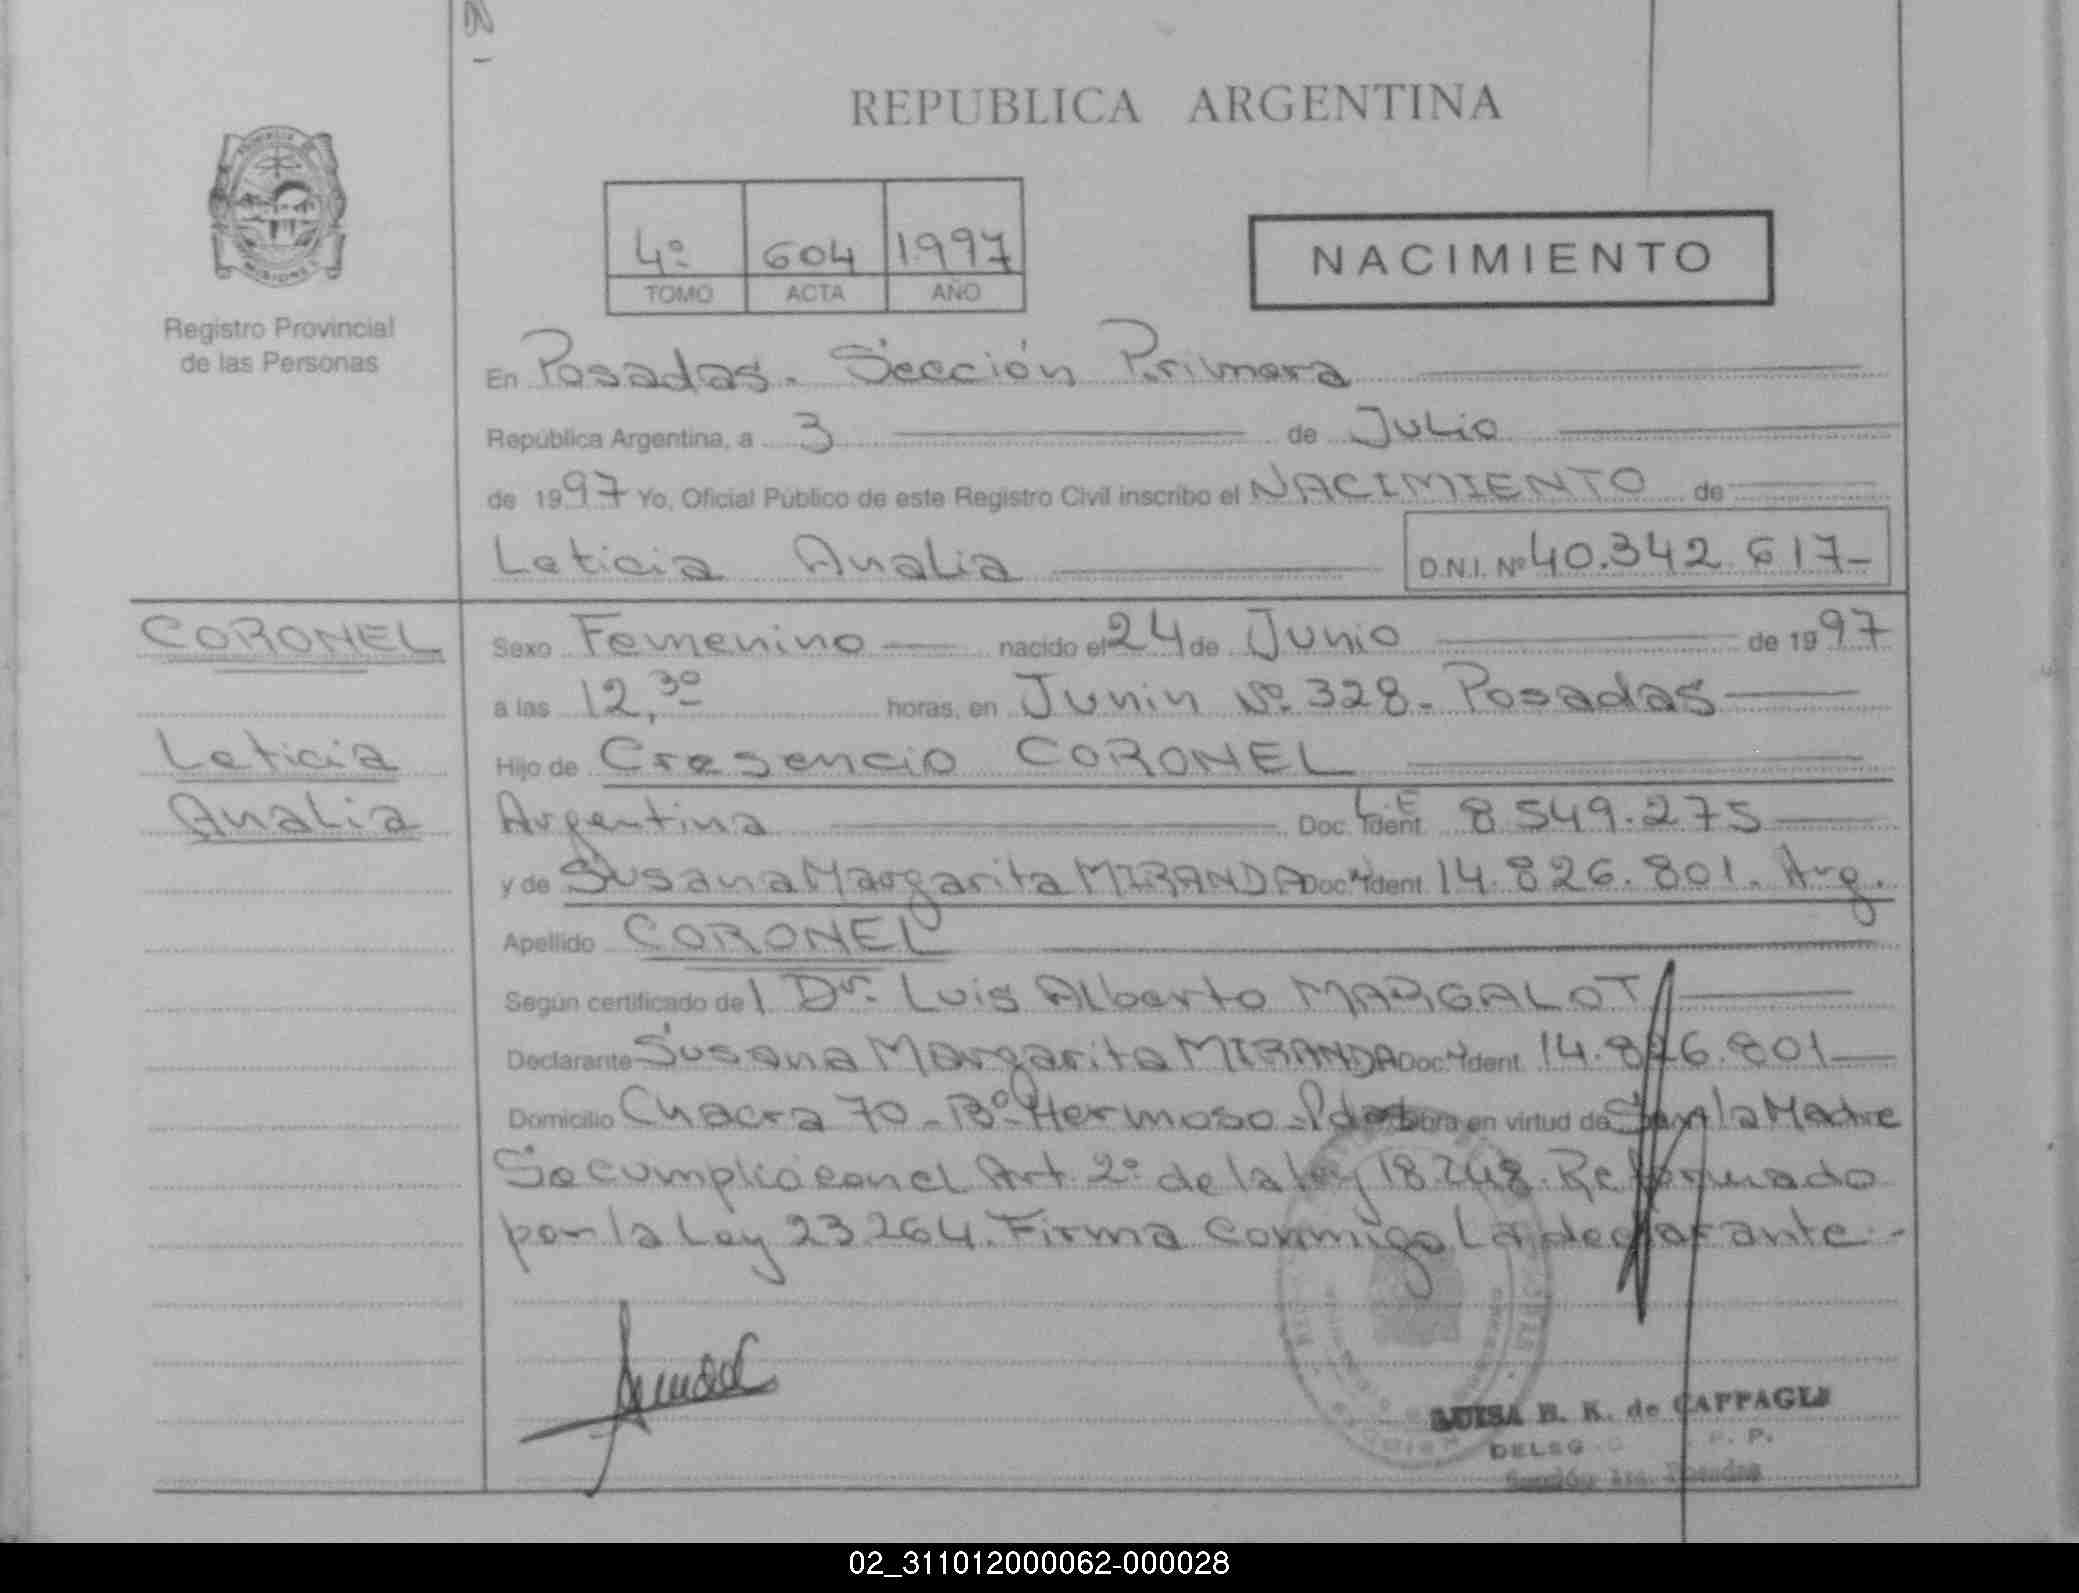 REPUBLICA ARGENTINA
4º 604 1997
TOMO ACTA AÑO
NACIMIENTO
Registro Provincial
de las Personas
En Posadas. Sección Primera
República Argentina, a 3 de Julio
de 1997 Yo, Oficial Público de este Registro Civil inscribo el NACIMIENTO de
Leticia Analia D.N.I. Nº 40.342.617-
CORONEL
Leticia
Analia
Sexo Femenino nacido el 24 de Junio de 1997
a las 12,30 horas, en Junin Nº 328. Posadas
Hijo de Cresencio CORONEL
Argentina Doc. Ident. L.E 8.549.275
y de Susana Margarita MIRANDA Doc. Ident. 14.826.801. Arg.
Apellido CORONEL
Según certificado del Dr. Luis Alberto MARGALOT
Declarante Susana Margarita MIRANDA Doc. Ident. 14.826.801
Domicilio Chacra 70 - Bº Hermoso - Pdas Obra en virtud de Ser la Madre
Se cumplió con el Art. 2º de la ley 18.248. Reformado
por la Ley 23264. Firma conmigo La declarante.-
LUISA B. K. de CAPPAGLI
Sección 1ra. Posadas
02_311012000062-000028